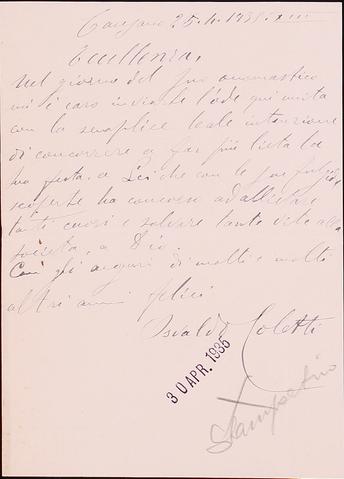 25.4.1935.XIII
Eccellenza,
Nel giorno del Suo onomastico
mi è caro inviarLe l'ode qui unita
con la semplice leale intenzione
di concorrere a far più lieta la
Sua festa, a Lei che con le Sue fulgide
scoperte ha concorso ad allietare
tanti cuori e salvare tante vite alla
società, a Dio.
Con gli auguri di molti e molti
altri anni felici
Osvaldo Coletti
30 APR. 1935